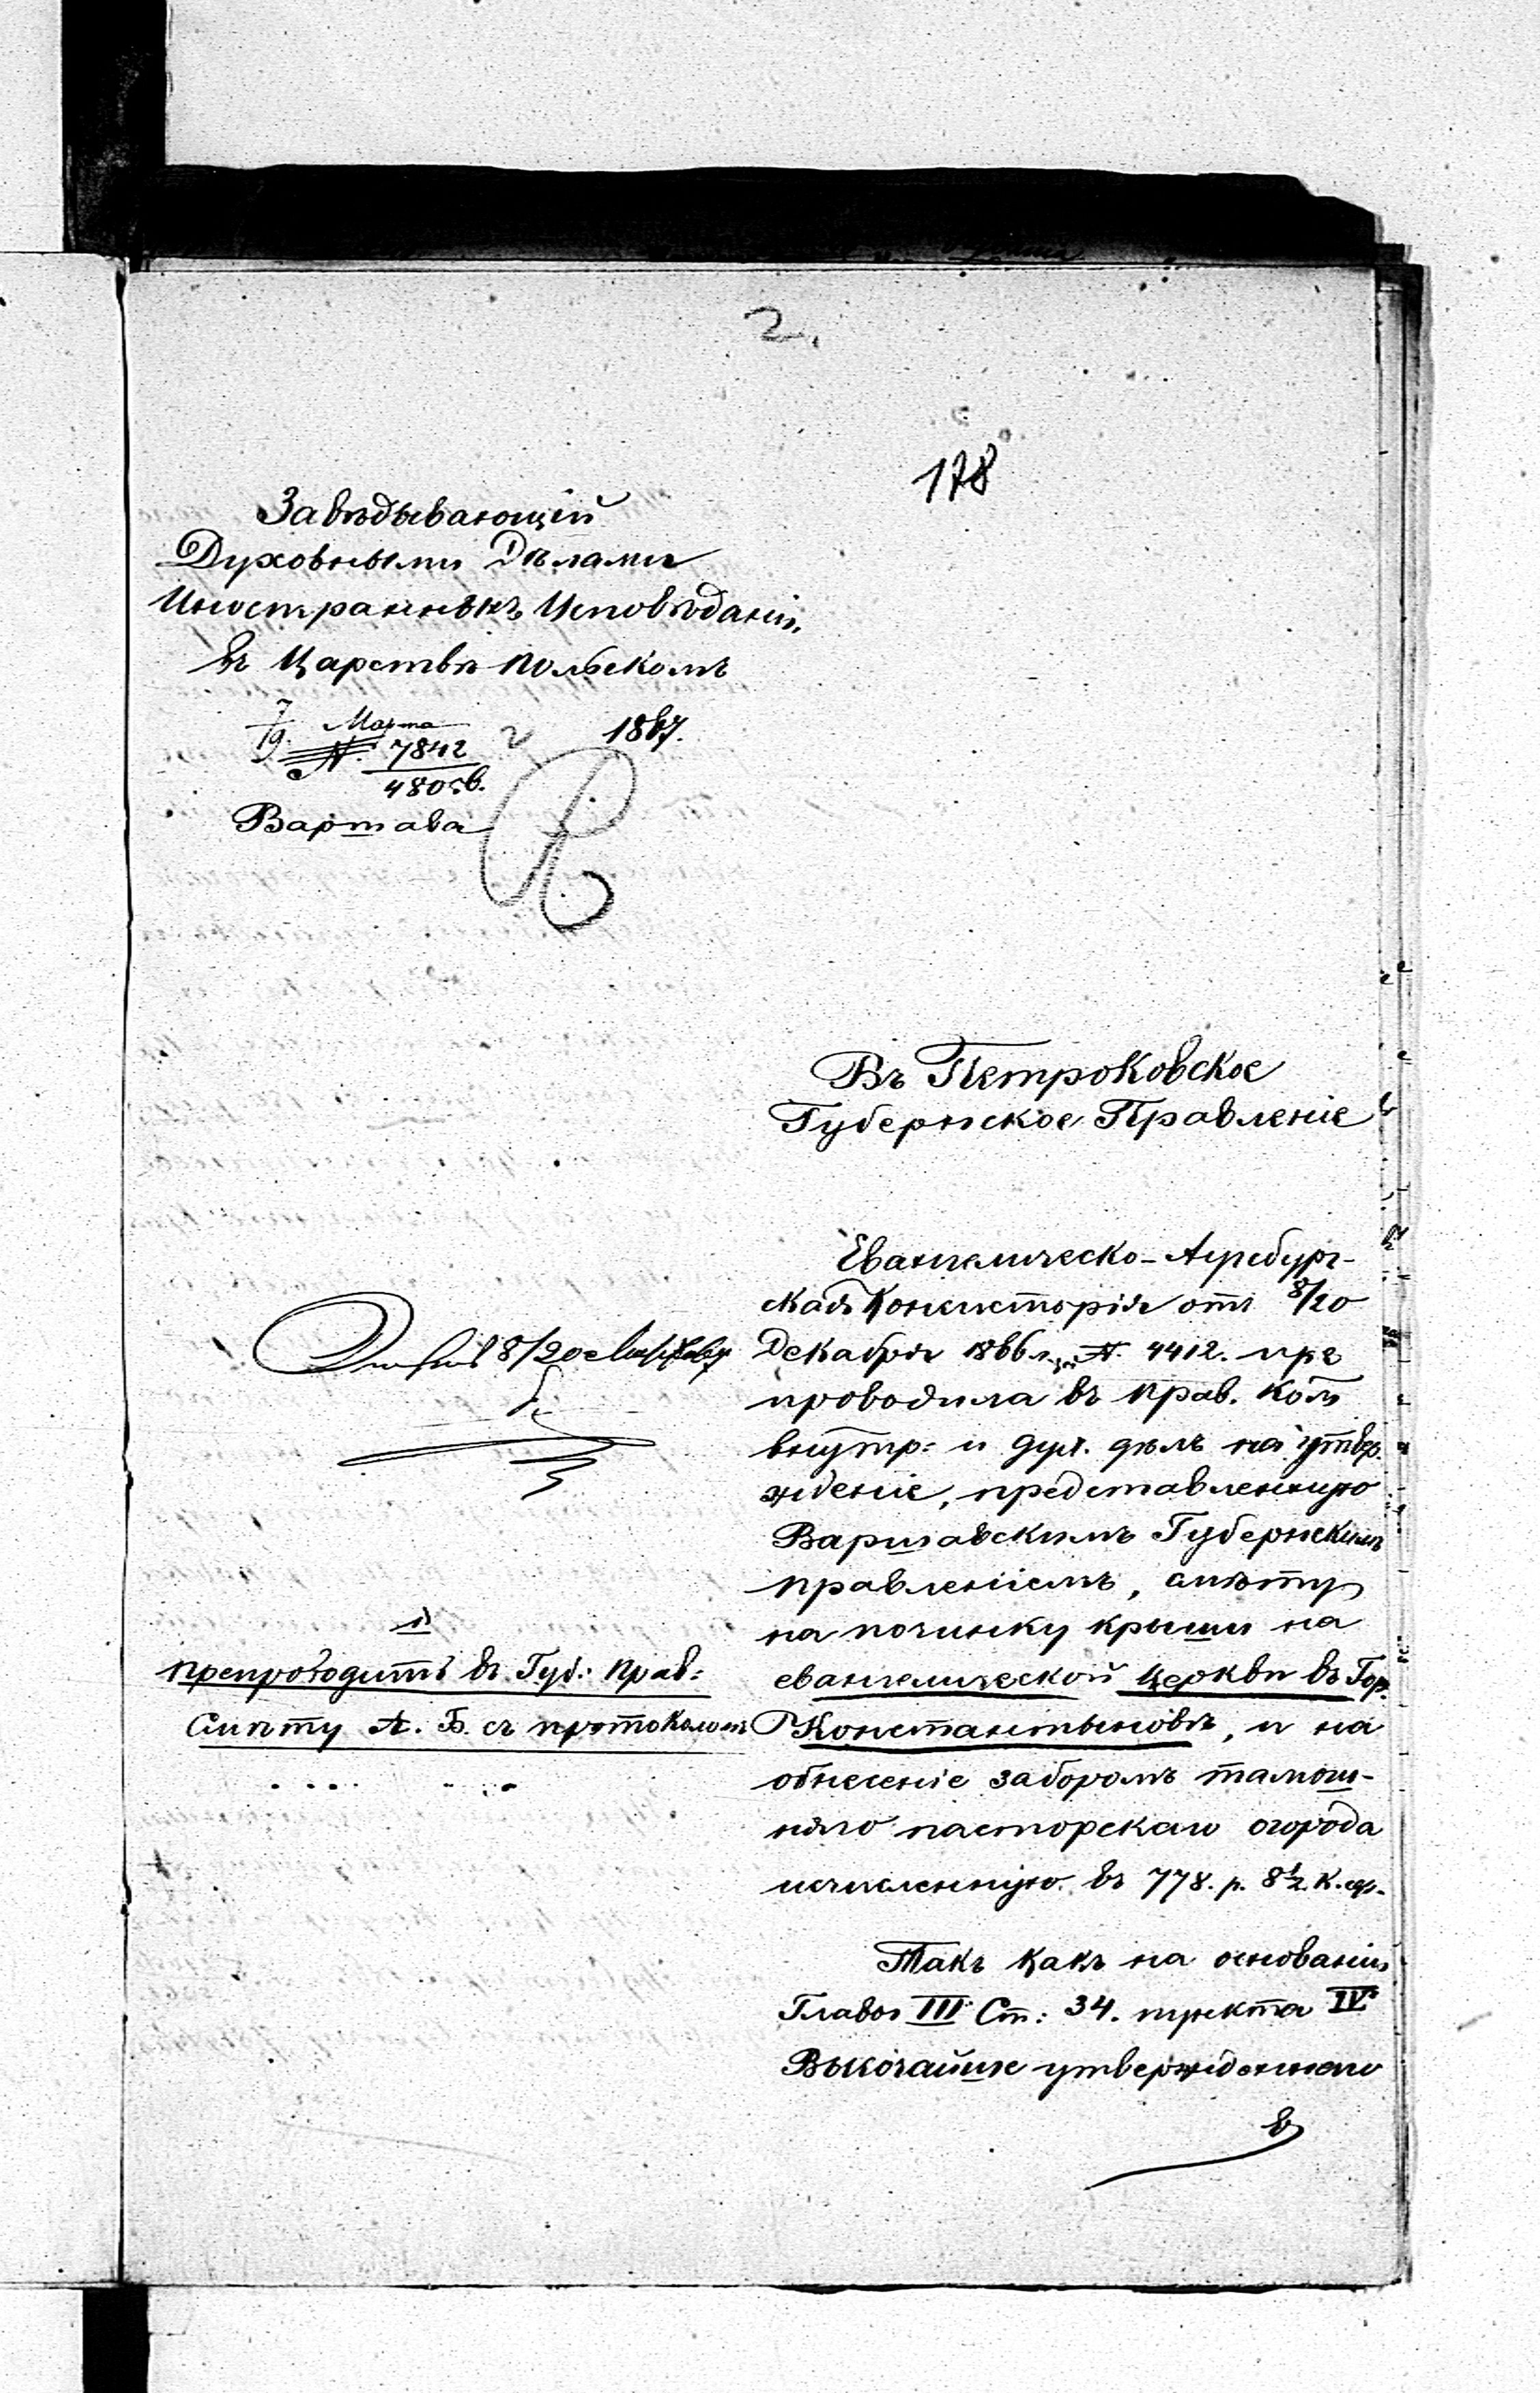 2.
178
Завѣдывающій
Духовными Дѣлами
Иностранныхъ Исповѣданій,
въ Царствѣ Польскомъ
7/19. Марта 1867.
N. 7842
Варшава
Въ Петроковское
Губернское Правленіе
Евангелическо-Аугсбург-
ская Консисторія отъ 8/20
Декабря 1866 г. за N. 4412. пре
проводила въ Прав. Ком
внутр: и дух. дѣлъ на утвер.
жденіе, представленную
Варшавскимъ Губернскимъ
правленіемъ, смѣту
на починку крыши на
евангелической Церкви въ Гор.
Константыновѣ, и на
обнесеніе заборомъ тамош-
няго пасторскаго огорода
исчисленную въ 778. р. 8½ к. ср.
Такъ какъ на основаніи
Главы III Ст: 34. пункта IV
Высочайше утвержденнаго
8/20
препроводить въ Губ: Прав:
Смѣту А. Б. съ протоколомъ